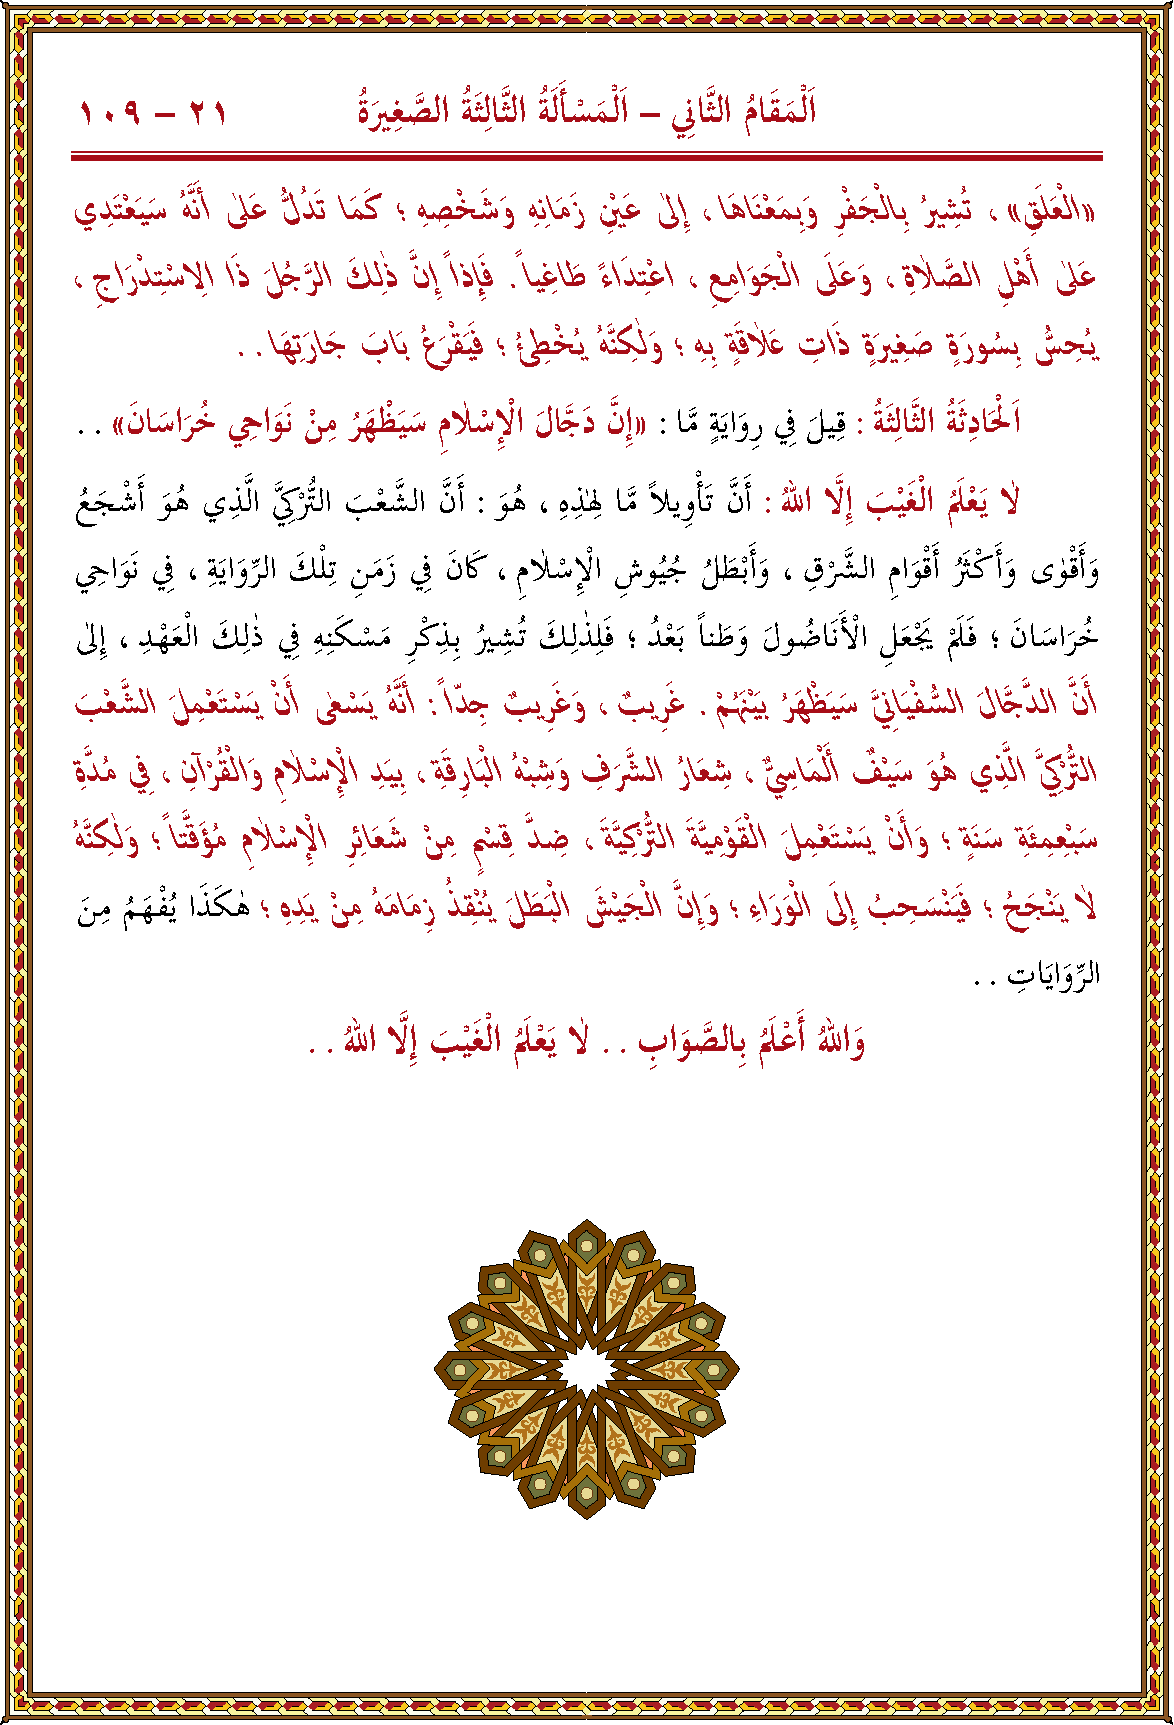 اَلْمَقَامُ الثَّانِي – اَلْمَسْأَلَةُ الثَّالِثَةُ الصَّغِيرَةُ ٢١ – ١٠٩
«الْعَلَقِ» ، تُشِيرُ بِالْجَفْرِ وَبِمَعْنَاهَا ، إِلىٰ عَيْنِ زَمَانِهِ وَشَخْصِهِ ؛ كَمَا تَدُلُّ عَلىٰ أَنَّهُ سَيَعْتَدِي
عَلىٰ أَهْلِ الصَّلَاةِ ، وَعَلَى الْجَوَامِعِ ، اعْتِدَاءً طَاغِياً . فَإِذاً إِنَّ ذٰلِكَ الرَّجُلَ ذَا الِاسْتِدْرَاجِ ،
يُحِسُّ بِسُورَةٍ صَغِيرَةٍ ذَاتِ عَلَاقَةٍ بِهِ ؛ وَلٰكِنَّهُ يُخْطِئُ ؛ فَيَقْرَعُ بَابَ جَارَتِهَا . .
اَلْحَادِثَةُ الثَّالِثَةُ : قِيلَ فِي رِوَايَةٍ مَّا : «إِنَّ دَجَّالَ الْإِسْلَامِ سَيَظْهَرُ مِنْ نَوَاحِي خُرَاسَانَ» . .
لَا يَعْلَمُ الْغَيْبَ إِلَّا اللهُ : أَنَّ تَأْوِيلاً مَّا لِهٰذِهِ ، هُوَ : أَنَّ الشَّعْبَ التُّرْكِيَّ الَّذِي هُوَ أَشْجَعُ
وَأَقْوٰى وَأَكْثَرُ أَقْوَامِ الشَّرْقِ ، وَأَبْطَلُ جُيُوشِ الْإِسْلَامِ ، كَانَ فِي زَمَنِ تِلْكَ الرِّوَايَةِ ، فِي نَوَاحِي
خُرَاسَانَ ؛ فَلَمْ يَجْعَلِ الْأَنَاضُولَ وَطَناً بَعْدُ ؛ فَلِذٰلِكَ تُشِيرُ بِذِكْرِ مَسْكَنِهِ فِي ذٰلِكَ الْعَهْدِ ، إِلىٰ
أَنَّ الدَّجَّالَ السُّفْيَانِيَّ سَيَظْهَرُ بَيْنَهُمْ . غَرِيبٌ ، وَغَرِيبٌ جِدّاً : أَنَّهُ يَسْعىٰ أَنْ يَسْتَعْمِلَ الشَّعْبَ
التُّرْكِيَّ الَّذِي هُوَ سَيْفٌ أَلْمَاسِيٌّ ، شِعَارُ الشَّرَفِ وَشِبْهُ الْبَارِقَةِ ، بِيَدِ الْإِسْلَامِ وَالْقُرْآنِ ، فِي مُدَّةِ
سَبْعِمِئَةِ سَنَةٍ ؛ وَأَنْ يَسْتَعْمِلَ الْقَوْمِيَّةَ التُّرْكِيَّةَ ، ضِدَّ قِسْمٍ مِنْ شَعَائِرِ الْإِسْلَامِ مُؤَقَّتاً ؛ وَلٰكِنَّهُ
لَا يَنْجَحُ ؛ فَيَنْسَحِبُ إِلَى الْوَرَاءِ ؛ وَإِنَّ الْجَيْشَ الْبَطَلَ يُنْقِذُ زِمَامَهُ مِنْ يَدِهِ ؛ هٰكَذَا يُفْهَمُ مِنَ
الرِّوَايَاتِ . .
وَاللهُ أَعْلَمُ بِالصَّوَابِ . . لَا يَعْلَمُ الْغَيْبَ إِلَّا اللهُ . .